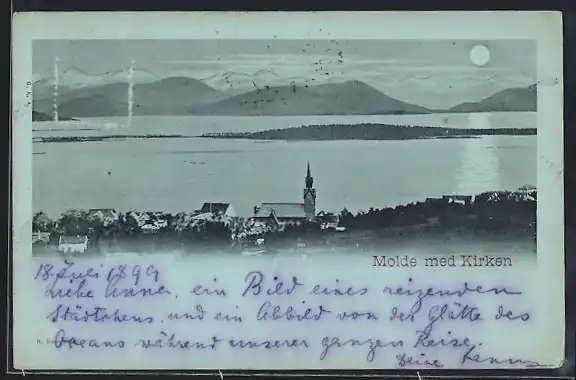 Molde med Kirken
18. Juli 1899
Liebe Anna, ein Bild eines reizenden
Städtchens, und ein Abbild von der Glätte des
Oceans während unserer ganzen Reise.
Deine